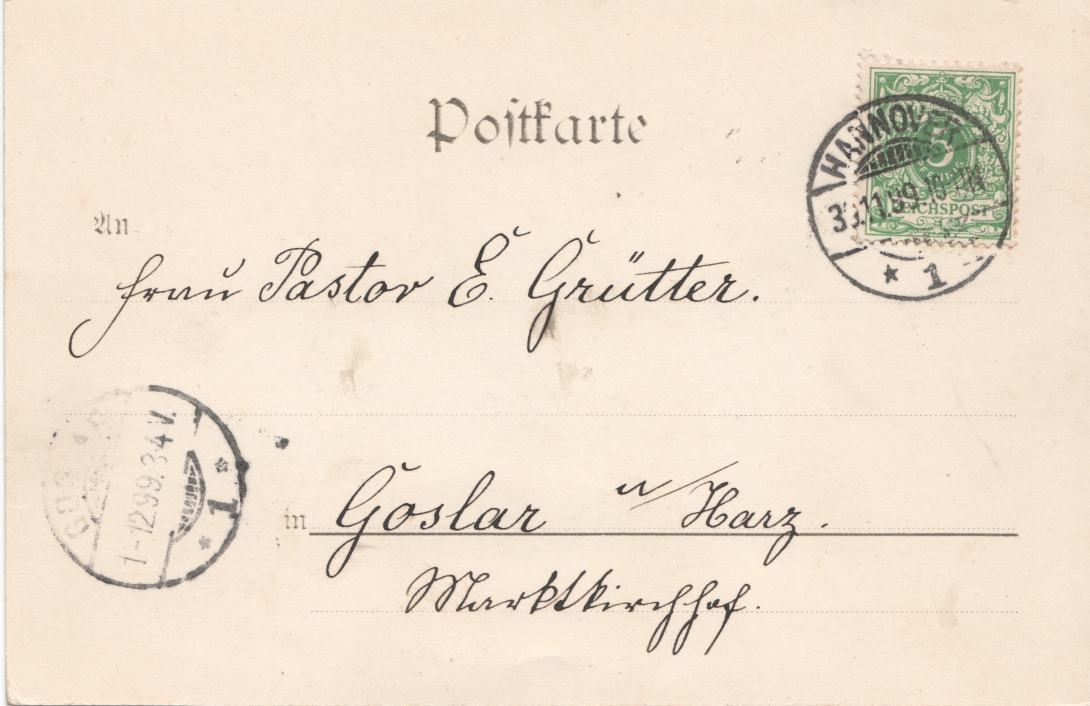 Postkarte
HANNOVER
30.11.99.10-11N
5
REICHSPOST
* 1
An
Frau Pastor E. Grütter.
1-12.99.3-4V.
* 1 *
in Goslar a/Harz.
Marktkirchhof.